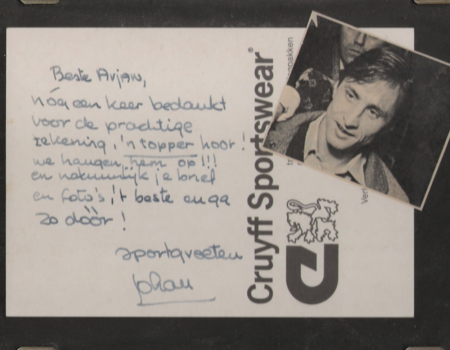 Beste Arjan,
nóg een keer bedankt
voor de prachtige
tekening, 'n topper hoor!
we hangen hem op!!!
en natuurlijk je brief
en foto's; 't beste en ga
zo dóór!
sportgroeten
Johan
Cruyff Sportswear®